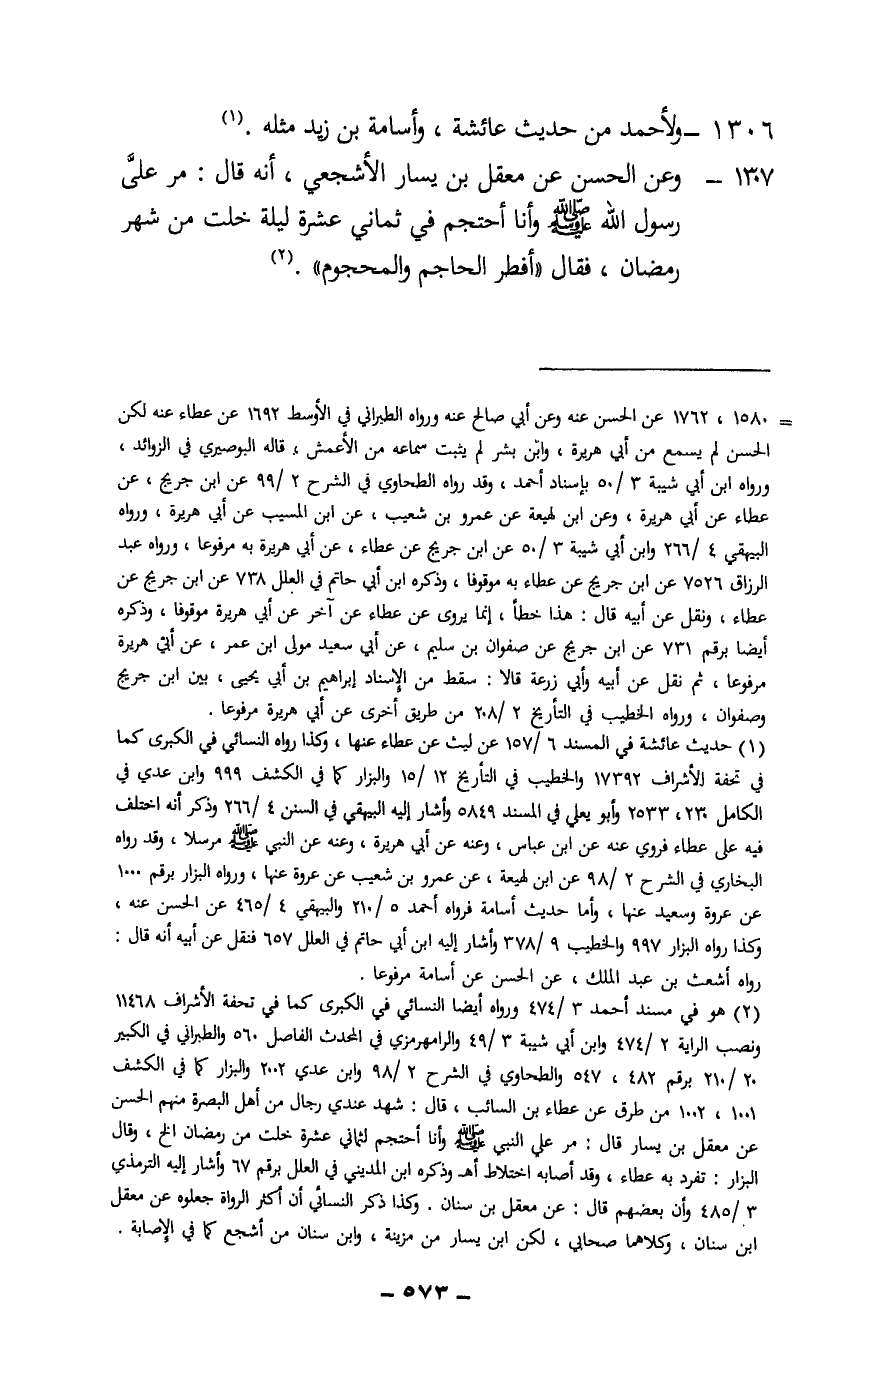 ١٣٠٦ – ولأحمد من حديث عائشة ، وأسامة بن زيد مثله .(١)
١٣٠٧ – وعن الحسن عن معقل بن يسار الأشجعي ، أنه قال : مر عليَّ
رسول الله ﷺ وأنا أحتجم في ثماني عشرة ليلة خلت من شهر
رمضان ، فقال «أفطر الحاجم والمحجوم» .(٢)
= ١٥٨٠ ، ١٧٦٢ عن الحسن عنه وعن أبي صالح عنه ورواه الطبراني في الأوسط ١٦٩٢ عن عطاء عنه لكن
الحسن لم يسمع من أبي هريرة ، وابن بشر لم يثبت سماعه من الأعمش ، قاله البوصيري في الزوائد ،
ورواه ابن أبي شيبة ٣ /٥٠ بإسناد أحمد ، وقد رواه الطحاوي في الشرح ٢ /٩٩ عن ابن جريج ، عن
عطاء عن أبي هريرة ، وعن ابن لهيعة عن عمرو بن شعيب ، عن ابن المسيب عن أبي هريرة ، ورواه
البيهقي ٤ /٢٦٦ وابن أبي شيبة ٣ /٥٠ عن ابن جريج عن عطاء ، عن أبي هريرة به مرفوعا ، ورواه عبد
الرزاق ٧٥٢٦ عن ابن جريج عن عطاء به موقوفا ، وذكره ابن أبي حاتم في العلل ٧٣٨ عن ابن جريج عن
عطاء ، ونقل عن أبيه قال : هذا خطأ ، إنما يروى عن عطاء عن آخر عن أبي هريرة موقوفا ، وذكره
أيضا برقم ٧٣١ عن ابن جريج عن صفوان بن سليم ، عن أبي سعيد مولى ابن عمر ، عن أبي هريرة
مرفوعا ، ثم نقل عن أبيه وأبي زرعة قالا : سقط من الإسناد إبراهيم بن أبي يحيى ، بين ابن جريج
وصفوان ، ورواه الخطيب في التأريخ ٢ /٢٠٨ من طريق أخرى عن أبي هريرة مرفوعا .
(١) حديث عائشة في المسند ٦ /١٥٧ عن ليث عن عطاء عنها ، وكذا رواه النسائي في الكبرى كما
في تحفة للأشراف ١٧٣٩٢ والخطيب في التأريخ ١٢ /١٥ والبزار كما في الكشف ٩٩٩ وابن عدي في
الكامل ٢٣٠، ٢٥٣٣ وأبو يعلي في المسند ٥٨٤٩ وأشار إليه البيهقي في السنن ٤ /٢٦٦ وذكر أنه اختلف
فيه على عطاء فروي عنه عن ابن عباس ، وعنه عن أبي هريرة ، وعنه عن النبي ﷺ مرسلا ، وقد رواه
البخاري في الشرح ٢ /٩٨ عن ابن لهيعة ، عن عمرو بن شعيب عن عروة عنها ، ورواه البزار برقم ١٠٠٠
عن عروة وسعيد عنها ، وأما حديث أسامة فرواه أحمد ٥ /٢١٠ والبيهقي ٤ /٤٦٥ عن الحسن عنه ،
وكذا رواه البزار ٩٩٧ والخطيب ٩ /٣٧٨ وأشار إليه ابن أبي حاتم في العلل ٦٥٧ فنقل عن أبيه أنه قال :
رواه أشعث بن عبد الملك ، عن الحسن عن أسامة مرفوعا .
(٢) هو في مسند أحمد ٣ /٤٧٤ ورواه أيضا النسائي في الكبرى كما في تحفة الأشراف ١١٤٦٨
ونصب الراية ٢ /٤٧٤ وابن أبي شيبة ٣ /٤٩ والرامهرمزي في المحدث الفاصل ٥٦٠ والطبراني في الكبير
٢٠ /٢١٠ برقم ٤٨٢ ، ٥٤٧ والطحاوي في الشرح ٢ /٩٨ وابن عدي ٢٠٠٢ والبزار كما في الكشف
١٠٠١ ، ١٠٠٢ من طرق عن عطاء بن السائب ، قال : شهد عندي رجال من أهل البصرة منهم الحسن
عن معقل بن يسار قال : مر علي النبي ﷺ وأنا أحتجم لثماني عشرة خلت من رمضان الخ ، وقال
البزار : تفرد به عطاء ، وقد أصابه اختلاط أهـ وذكره ابن المديني في العلل برقم ٦٧ وأشار إليه الترمذي
٣ /٤٨٥ وأن بعضهم قال : عن معقل بن سنان . وكذا ذكر النسائي أن أكثر الرواة جعلوه عن معقل
ابن سنان ، وكلاهما صحابي ، لكن ابن يسار من مزينة ، وابن سنان من أشجع كما في الإصابة .
– ٥٧٣ –